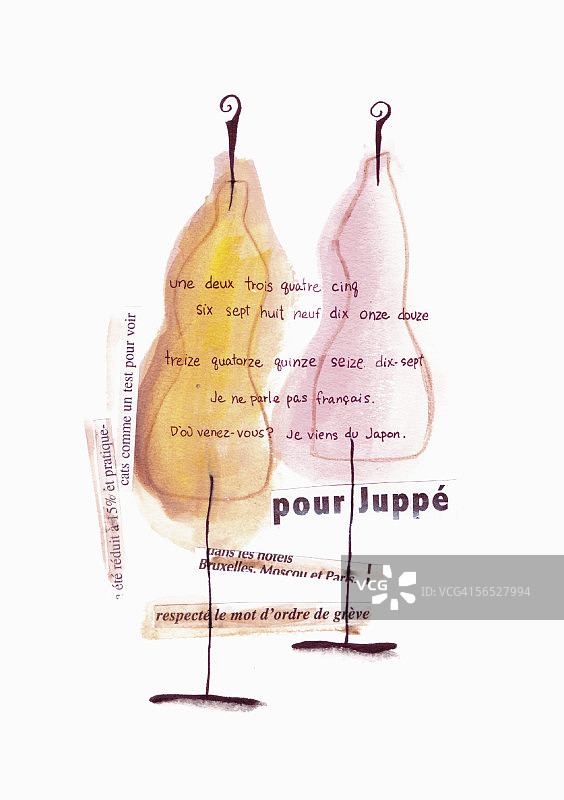 une deux trois quatre cinq
six sept huit neuf dix onze douze
treize quatorze quinze seize dix-sept
Je ne parle pas français.
D'où venez-vous? Je viens du Japon.
cats comme un test pour voir
été réduit à 15% et pratique-
pour Juppé
dans les hôtels
Bruxelles, Moscou et Paris
respecté le mot d'ordre de grève
VCG
ID: VCG41N56527994